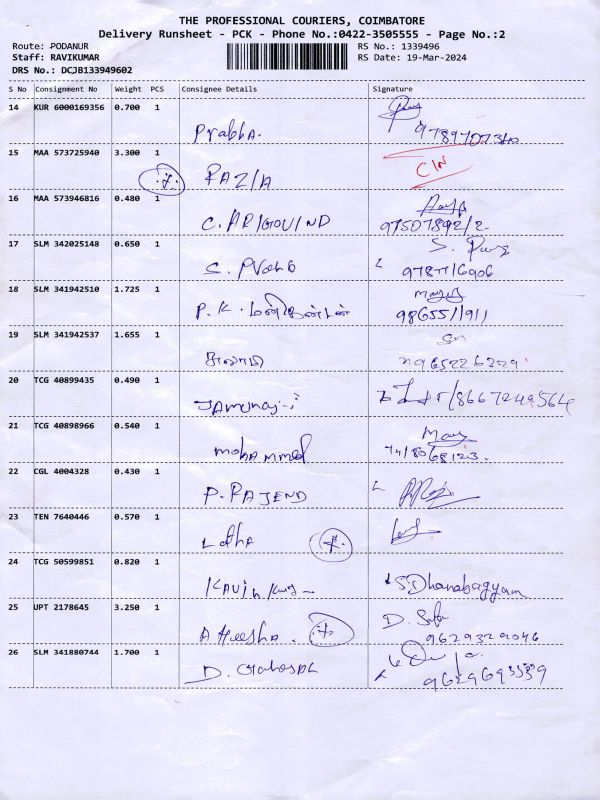 THE PROFESSIONAL COURIERS, COIMBATORE
Delivery Runsheet - PCK - Phone No.:0422-3505555 - Page No.:2
Route: PODANUR RS No.: 1339496
Staff: RAVIKUMAR RS Date: 19-Mar-2024
DRS No.: DCJB133949602
S No Consignment No Weight PCS Consignee Details Signature
14 KUR 6000169356 0.700 1
Prabha.
15 MAA 573725940 3.300 1
RAZIA C/N
16 MAA 573946816 0.480 1
C. ARIGOVIND
17 SLM 342025148 0.650 1
9787716906
18 SLM 341942510 1.725 1
P.K. 9865511911
19 SLM 341942537 1.655 1
20 TCG 40899435 0.490 1
8667249564
21 TCG 40898966 0.540 1
mohammed
22 CGL 4004328 0.430 1
P. RAJEND
23 TEN 7640446 0.570 1
Latha
24 TCG 50599851 0.820 1
S Dhanabagyam
25 UPT 2178645 3.250 1
D.
9629329046
26 SLM 341880744 1.700 1
D.